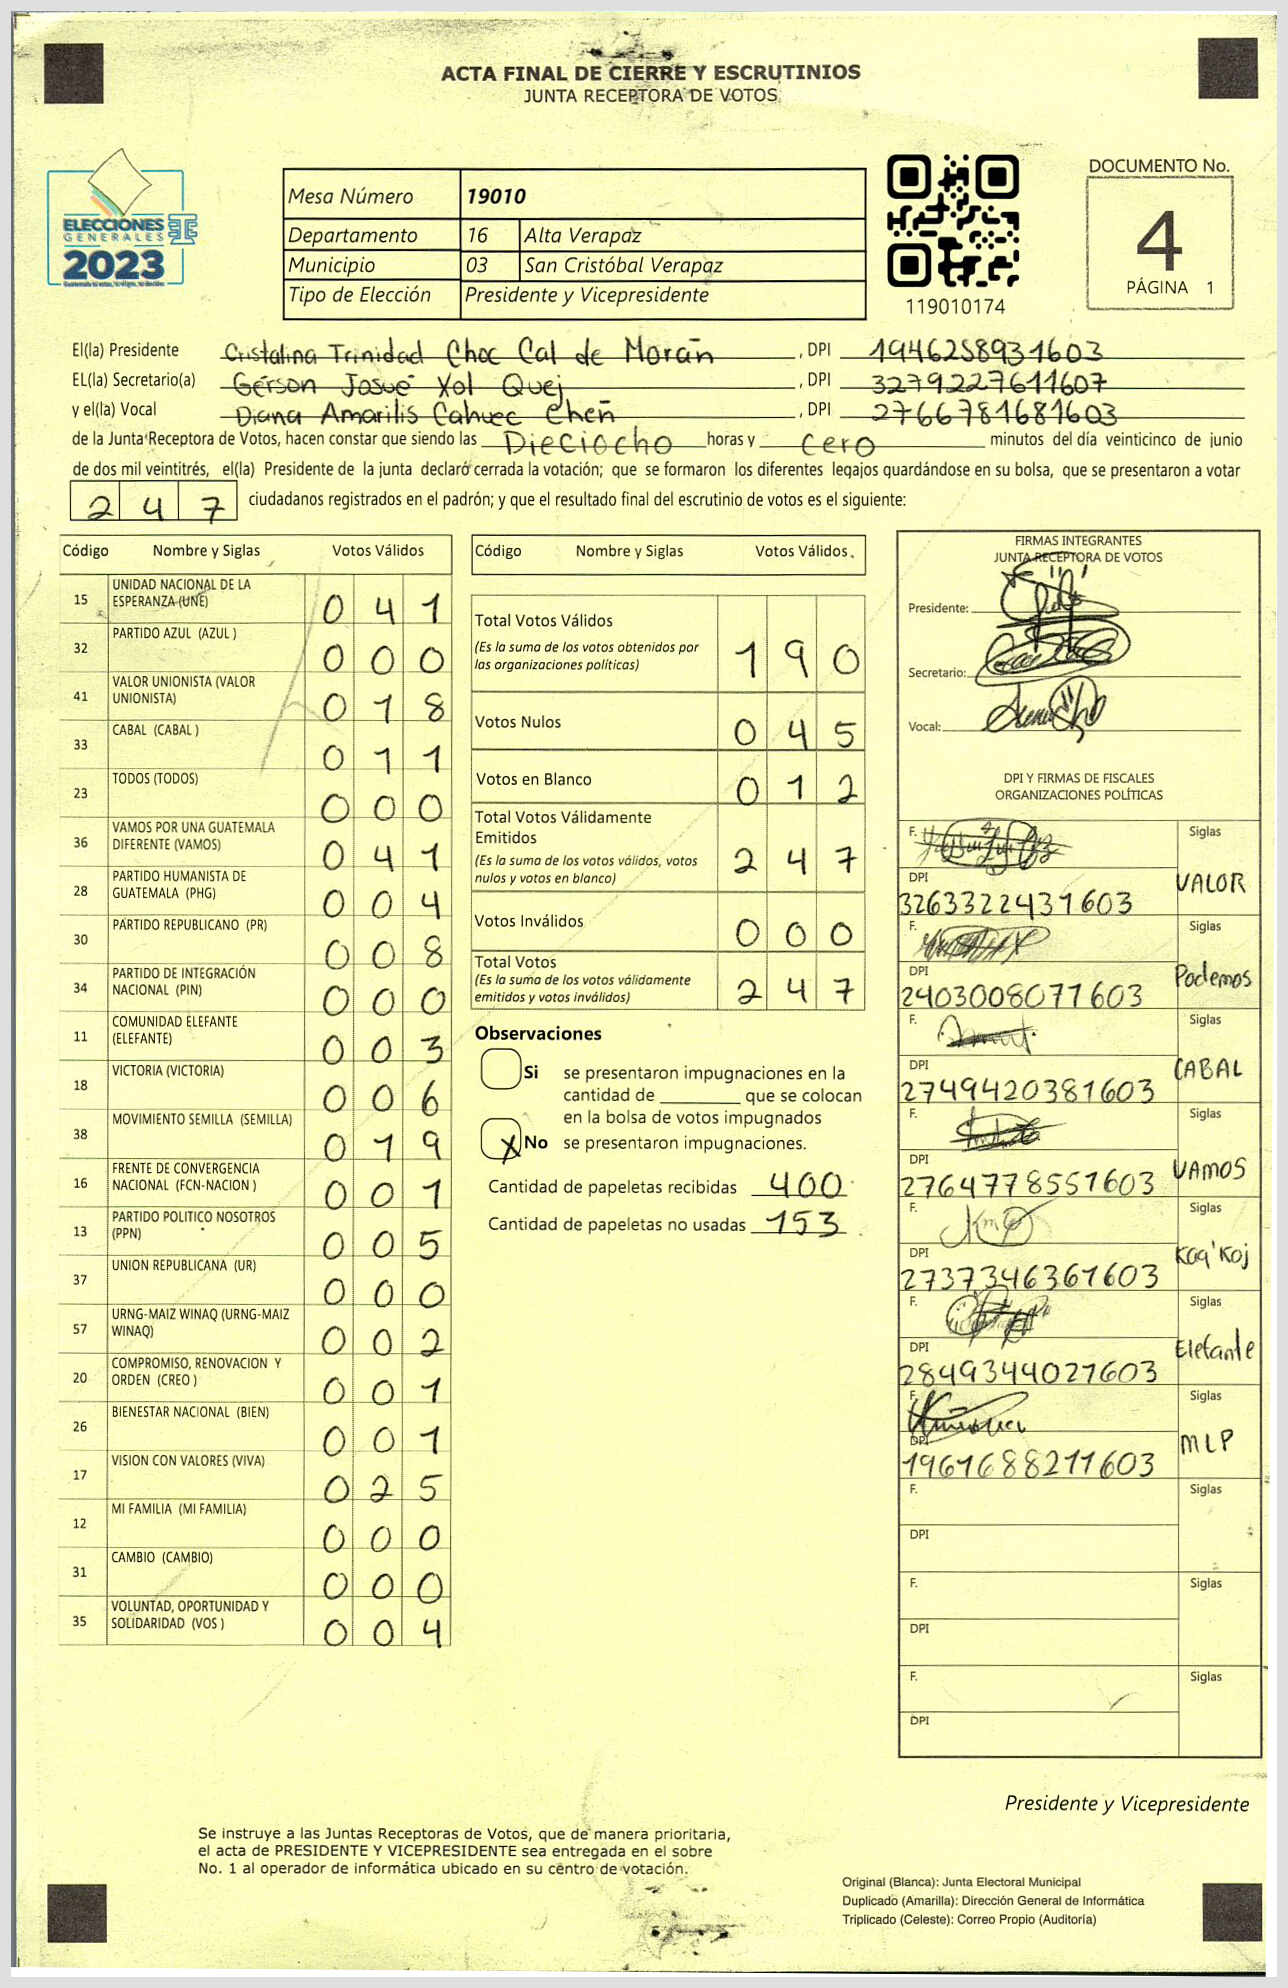 ACTA FINAL DE CIERRE Y ESCRUTINIOS
JUNTA RECEPTORA DE VOTOS
ELECCIONES
GENERALES
2023
Mesa Número 19010
Departamento 16 Alta Verapaz
Municipio 03 San Cristóbal Verapaz
Tipo de Elección Presidente y Vicepresidente
119010174
DOCUMENTO No.
4
PÁGINA 1
El(la) Presidente Cristalina Trinidad Choc Cal de Morán , DPI 1946258931603
EL(la) Secretario(a) Gérson Josué Xol Quej , DPI 3279227611607
y el(la) Vocal Diana Amarilis Cahuec Cheñ , DPI 2766781681603
de la Junta Receptora de Votos, hacen constar que siendo las Dieciocho horas y cero minutos del día veinticinco de junio
de dos mil veintitrés, el(la) Presidente de la junta declaró cerrada la votación; que se formaron los diferentes legajos guardándose en su bolsa, que se presentaron a votar
247 ciudadanos registrados en el padrón; y que el resultado final del escrutinio de votos es el siguiente:
Código Nombre y Siglas Votos Válidos
15 UNIDAD NACIONAL DE LA ESPERANZA (UNE) 041
32 PARTIDO AZUL (AZUL ) 000
41 VALOR UNIONISTA (VALOR UNIONISTA) 018
33 CABAL (CABAL ) 011
23 TODOS (TODOS) 000
36 VAMOS POR UNA GUATEMALA DIFERENTE (VAMOS) 041
28 PARTIDO HUMANISTA DE GUATEMALA (PHG) 004
30 PARTIDO REPUBLICANO (PR) 008
34 PARTIDO DE INTEGRACIÓN NACIONAL (PIN) 000
11 COMUNIDAD ELEFANTE (ELEFANTE) 003
18 VICTORIA (VICTORIA) 006
38 MOVIMIENTO SEMILLA (SEMILLA) 019
16 FRENTE DE CONVERGENCIA NACIONAL (FCN-NACION ) 001
13 PARTIDO POLITICO NOSOTROS (PPN) 005
37 UNION REPUBLICANA (UR) 000
57 URNG-MAIZ WINAQ (URNG-MAIZ WINAQ) 002
20 COMPROMISO, RENOVACION Y ORDEN (CREO ) 001
26 BIENESTAR NACIONAL (BIEN) 001
17 VISION CON VALORES (VIVA) 025
12 MI FAMILIA (MI FAMILIA) 000
31 CAMBIO (CAMBIO) 000
35 VOLUNTAD, OPORTUNIDAD Y SOLIDARIDAD (VOS ) 004
Código Nombre y Siglas Votos Válidos
Total Votos Válidos 190
(Es la suma de los votos obtenidos por
las organizaciones políticas)
Votos Nulos 045
Votos en Blanco 012
Total Votos Válidamente
Emitidos 247
(Es la suma de los votos válidos, votos
nulos y votos en blanco)
Votos Inválidos 000
Total Votos 247
(Es la suma de los votos válidamente
emitidos y votos inválidos)
Observaciones
Si se presentaron impugnaciones en la
cantidad de ________ que se colocan
en la bolsa de votos impugnados
X No se presentaron impugnaciones.
Cantidad de papeletas recibidas 400
Cantidad de papeletas no usadas 153
FIRMAS INTEGRANTES
JUNTA RECEPTORA DE VOTOS
Presidente:
Secretario:
Vocal:
DPI Y FIRMAS DE FISCALES
ORGANIZACIONES POLÍTICAS
F. Siglas
DPI VALOR
3263322431603
F. Siglas
DPI Podemos
2403008071603
F. Siglas
DPI CABAL
2749420381603
F. Siglas
DPI VAMOS
2764778551603
F. Siglas
DPI Kaq'Koj
2737346361603
F. Siglas
DPI Elefante
2849344021603
F. Siglas
DPI MLP
1961688211603
F. Siglas
DPI
F. Siglas
DPI
F. Siglas
DPI
Presidente y Vicepresidente
Se instruye a las Juntas Receptoras de Votos, que de manera prioritaria,
el acta de PRESIDENTE Y VICEPRESIDENTE sea entregada en el sobre
No. 1 al operador de informática ubicado en su centro de votación.
Original (Blanca): Junta Electoral Municipal
Duplicado (Amarilla): Dirección General de Informática
Triplicado (Celeste): Correo Propio (Auditoría)